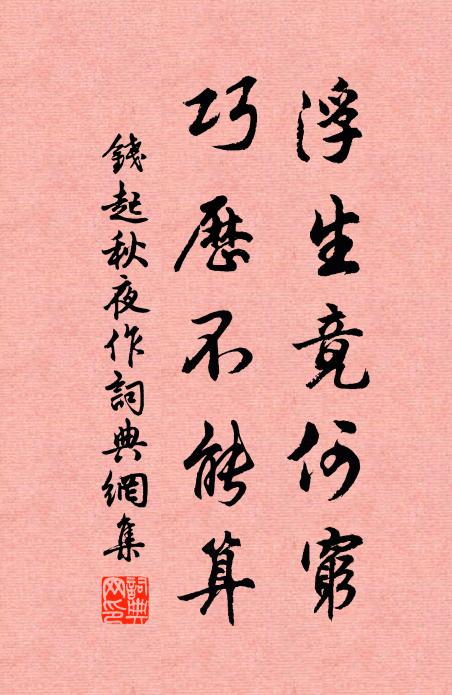 浮生竟何窮
巧歷不能算
錢起秋夜作詞典網集
詞典
网印